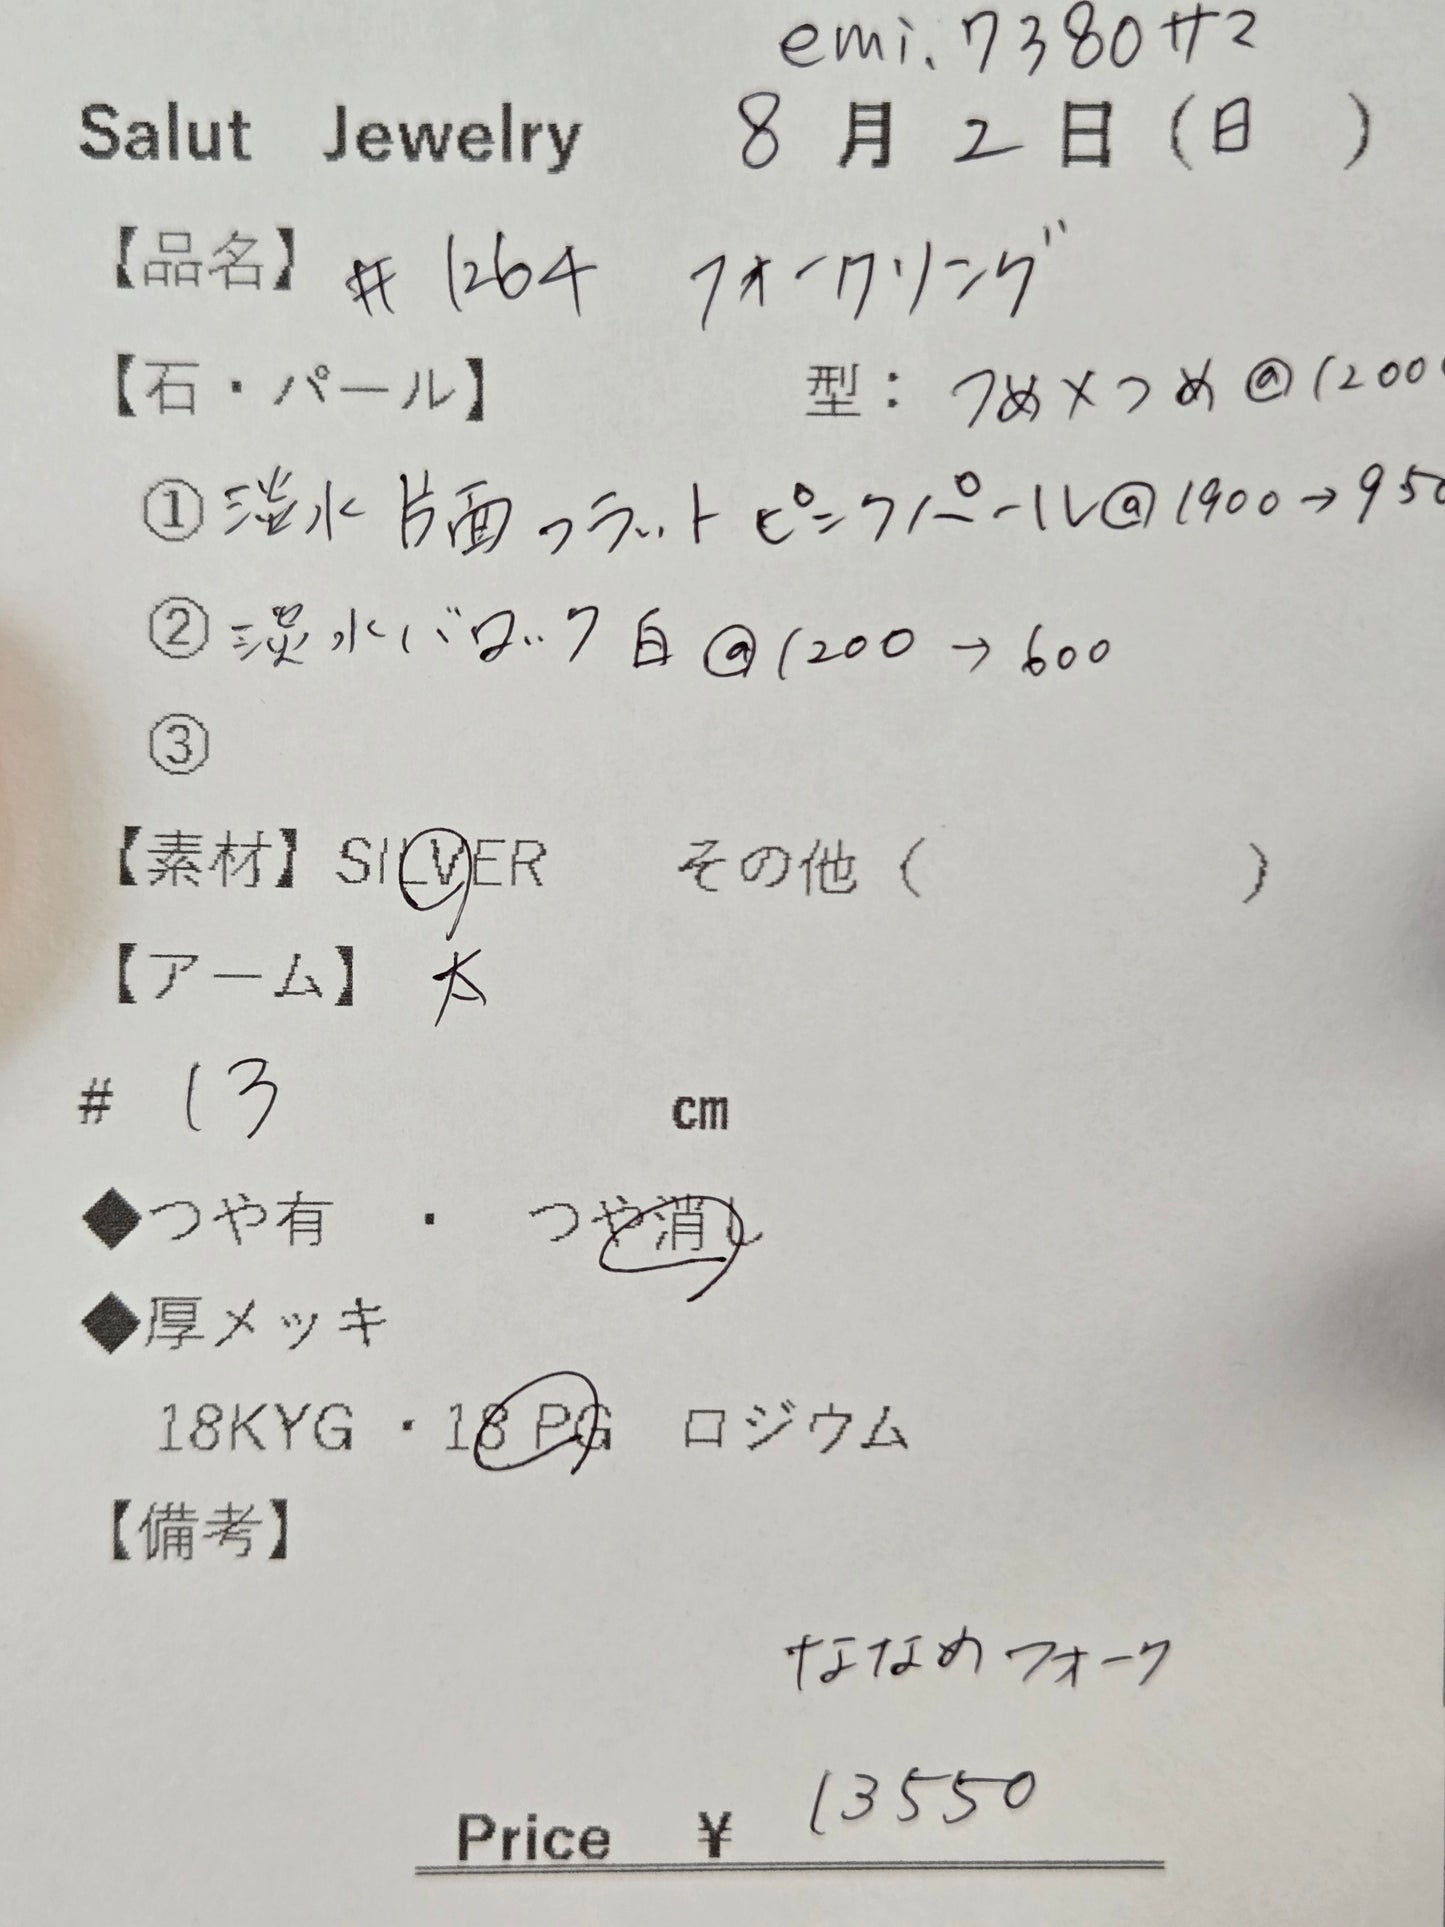 emi.7380サマ
Salut Jewelry 8月2日(日 )
【品名】 # 1264 フォークリング
【石・パール】 型: つめ×つめ@1200
①淡水片面フラットピンクパール@1900→950
②淡水バロック白@1200→600
③
【素材】SILVER その他( )
【アーム】 太
# 13 cm
◆つや有 ・ つや消し
◆厚メッキ
18KYG ・18 PG ロジウム
【備考】
ななめフォーク
13550
Price ¥